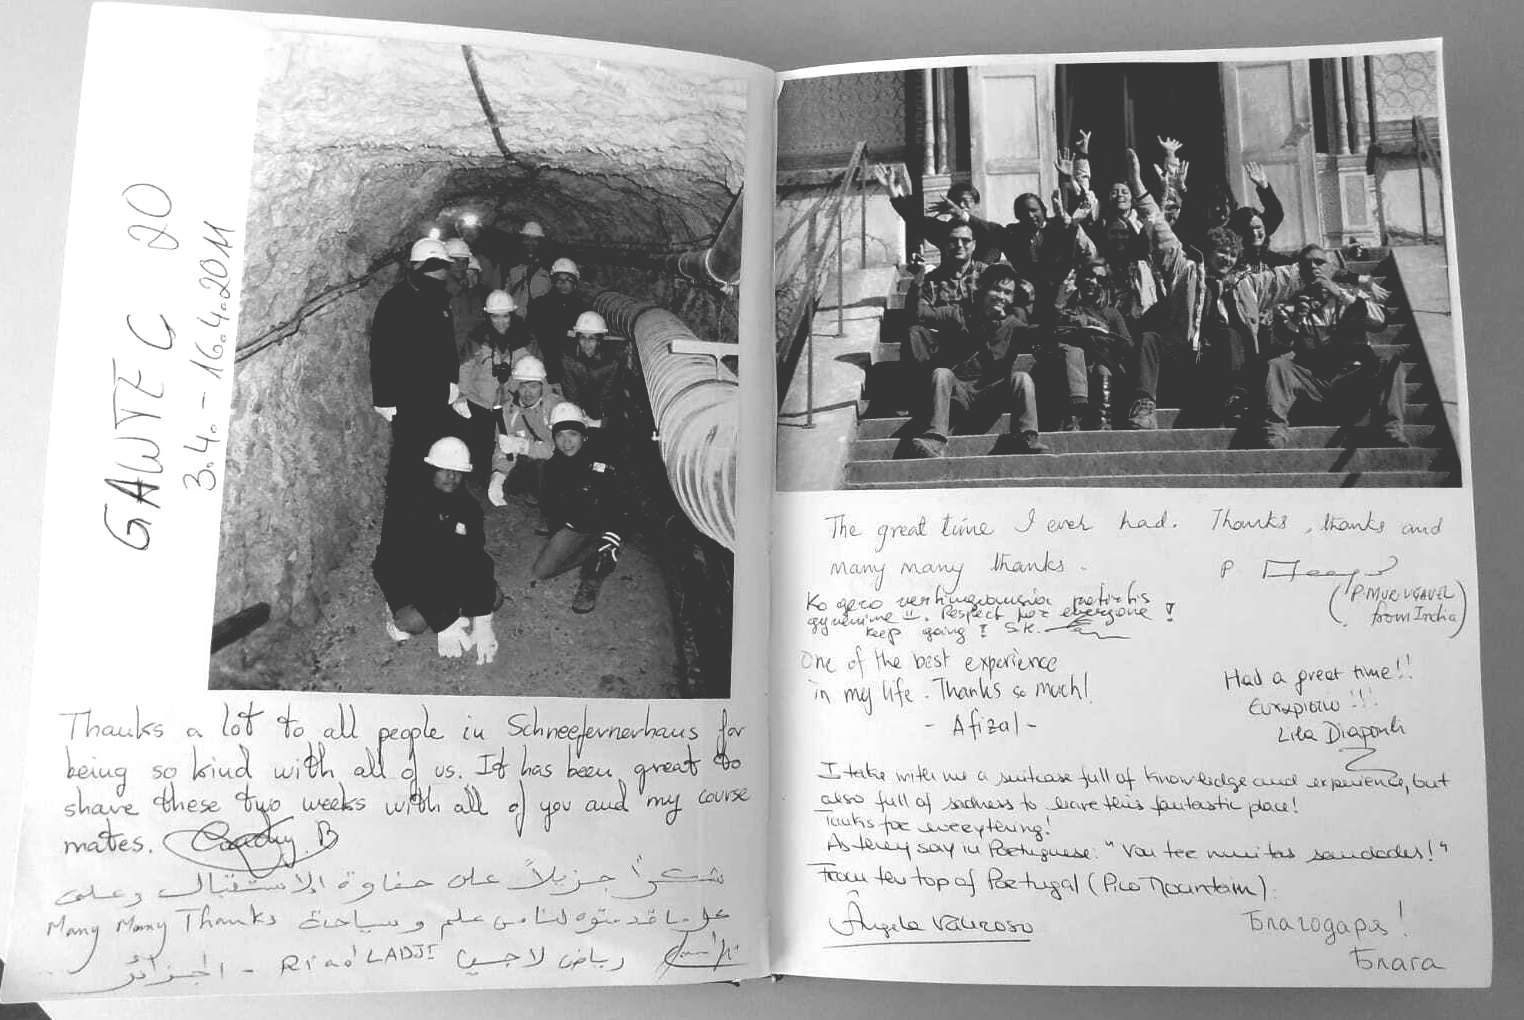 GAWTEC 20
3.4. - 16.4.2011
Thanks a lot to all people in Schneefernerhaus for
being so kind with all of us. It has been great to
share these two weeks with all of you and my course
mates.
شكراً جزيلاً على حفاوة الاستقبال وعلى
كل ما قدمتوه لنا من علم و سياحة Many Many Thanks
رياض لاجيـي Riad LADJI - الجزائر
The great time I ever had. Thanks, thanks and
many many thanks.
P
(P. MURUGAVEL
from India)
Ko gero
gyvenime Respect for everyone !
keep going ! S.K.
One of the best experience
in my life. Thanks so much!
- Afizal -
Had a great time!!
Ευχαριστω !!!
Lila Diapouli
I take with me a suitcase full of knowledge and experience, but
also full of sadness to leave this fantastic place!
Tanks for everything!
As they say in Portuguese: "Vou ter muitas saudades!"
From the top of Portugal (Pico Mountain)
Ângela
Благодаря!
Блага